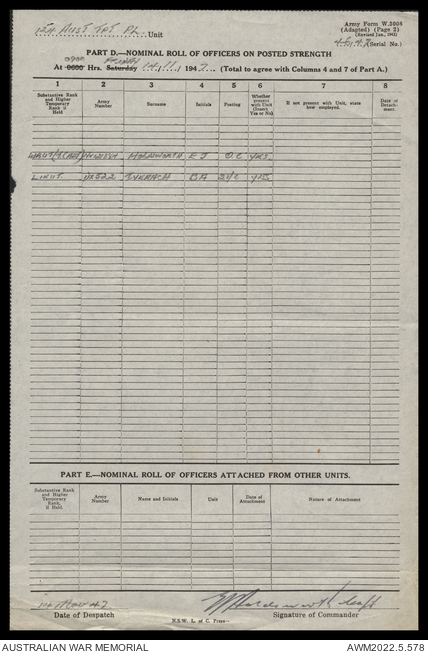 Army Form W.3004
(Adapted) (Page 2)
(Revised Jan., 1942)
(Serial No.)
Aust Tpt Pl Unit
PART D.—NOMINAL ROLL OF OFFICERS ON POSTED STRENGTH
At 0600 Hrs. Saturday 14/11/1947 (Total to agree with Columns 4 and 7 of Part A.)
1 2 3 4 5 6 7 8
Substantive Rank and Higher Temporary Rank if Held
Army Number
Surname
Initials
Posting
Whether present with Unit (Insert Yes or No)
If not present with Unit, state how employed.
Date of Detachment.
HOLDSWORTH E J O.C YES
LIEUT. B A 2I/C YES
PART E.—NOMINAL ROLL OF OFFICERS ATTACHED FROM OTHER UNITS.
Substantive Rank and Higher Temporary Rank, if Held.
Army Number
Name and Initials
Unit
Date of Attachment
Nature of Attachment
14 Nov 47
Holdsworth Capt
Date of Despatch
Signature of Commander
N.S.W. L. of C. Press—
AUSTRALIAN WAR MEMORIAL
AWM2022.5.578